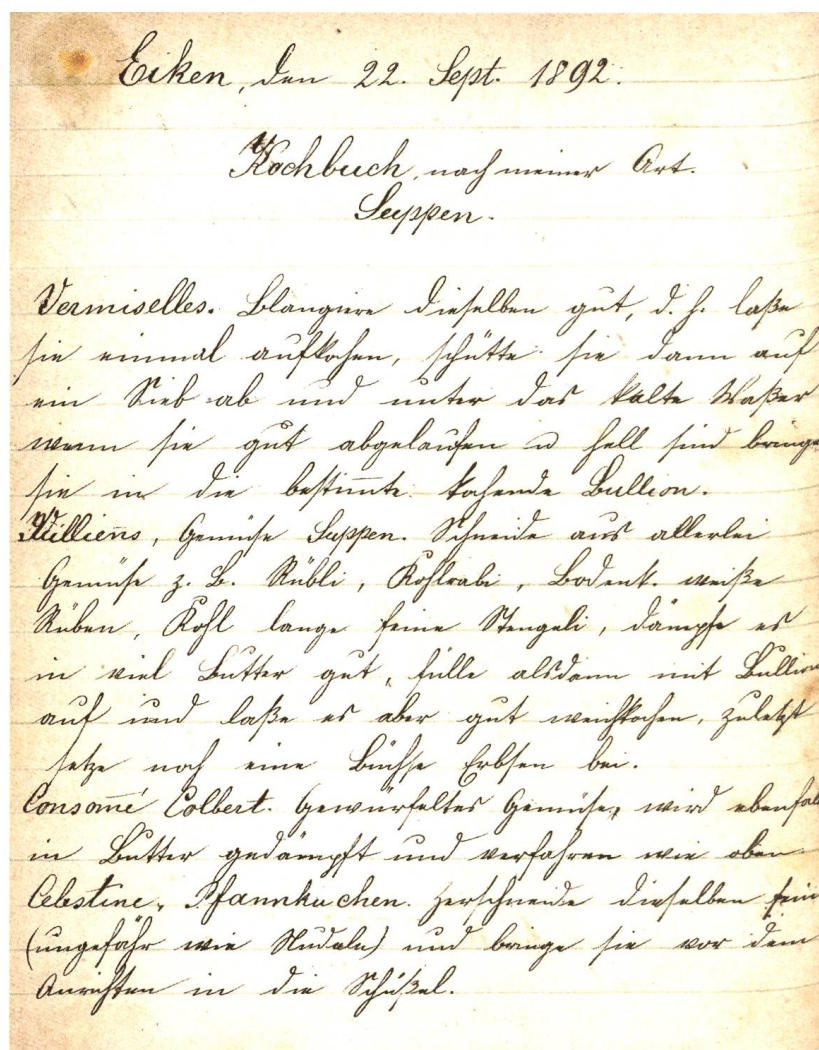 Eiken, den 22. Sept. 1892.
Kochbuch, nach meiner Art.
Suppen.
Vermiselles. Blangiere dieselben gut, d. h. laße
sie einmal aufkochen, schütte sie dann auf
ein Sieb ab und unter das kalte Waßer
wenn sie gut abgelaufen u hell sind bringe
sie in die bestim̄te kochende Bullion.
Jülliens, Gemüse Suppen. Schneide aus allerlei
Gemüse z. B. Rübli, Kohlrabi, Bodenk. weiße
Rüben, Kohl lange feine Stengeli, dämpfe es
in viel Butter gut, fülle alsdann mit Bullion
auf und laße es aber gut weichkochen, zuletzt
setze noch eine Büchse Erbsen bei.
Consom̄é Colbert. Gewürfeltes Gemüse, wird ebenfal
in Butter gedämpft und verfahren wie oben
Celestine, Pfannkuchen. Zerschneide dieselben fein
(ungefähr wie Nudeln) und bringe sie vor dem
Anrichten in die Schüßel.